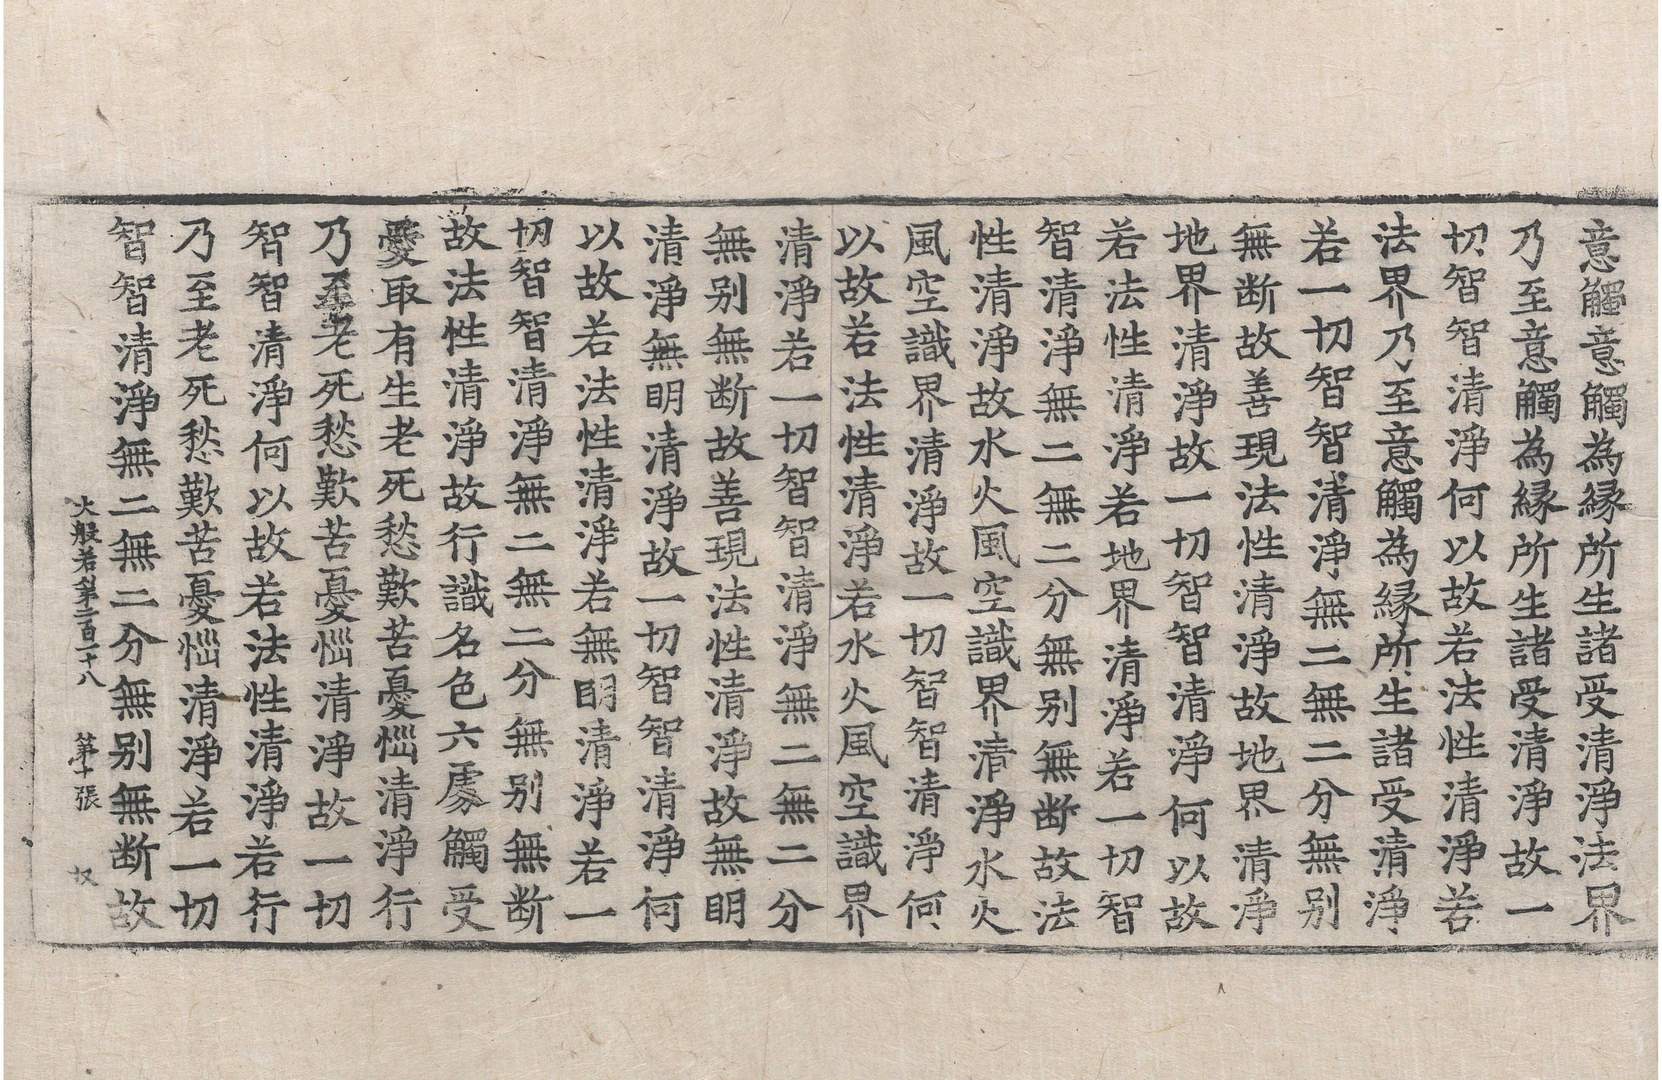 意觸意觸為緣所生諸受清淨法界
乃至意觸為緣所生諸受清淨故一
切智智清淨何以故若法性清淨若
法界乃至意觸為緣所生諸受清淨
若一切智智清淨無二無二分無別
無断故善現法性清淨故地界清淨
地界清淨故一切智智清淨何以故
若法性清淨若地界清淨若一切智
智清淨無二無二分無別無断故法
性清淨故水火風空識界清淨水火
風空識界清淨故一切智智清淨何
以故若法性清淨若水火風空識界
清淨若一切智智清淨無二無二分
無別無断故善現法性清淨故無明
清淨無明清淨故一切智智清淨何
以故若法性清淨若無明清淨若一
切智智清淨無二無二分無別無断
故法性清淨故行識名色六處觸受
愛取有生老死愁歎苦憂惱清淨行
乃至老死愁歎苦憂惱清淨故一切
智智清淨何以故若法性清淨若行
乃至老死愁歎苦憂惱清淨若一切
智智清淨無二無二分無別無断故
大般若第二百一十八 第十張